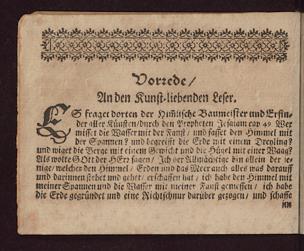 Vorrede/
An den Kunst-liebenden Leser.
ES fraget dorten der Himlische Baumeister und Erfin-
der aller Künsten/durch den Propheten Jesaiam cap 40 Wer
misset die Wasser mit der Faust/ und fasset den Himmel mit
der Spannen? und begreifft die Erde mit einem Dreyling?
und wiget die Berge mit einem Gewicht und die Hügel mit einer Waag?
Als wolte GOtt der HErr sagen/ Ich der Allmächtige bin allein der je-
nige/welcher den Himmel/ Erden und das Meer auch alles was darauff
und darinnen stehet und gehet/ erschaffen hat/ ich habe den Himmel mit
meiner Spannen und die Wasser mit meiner Faust gemessen/ ich habe
die Erde gegründet und eine Richtschnur darüber gezogen/ und schaffe